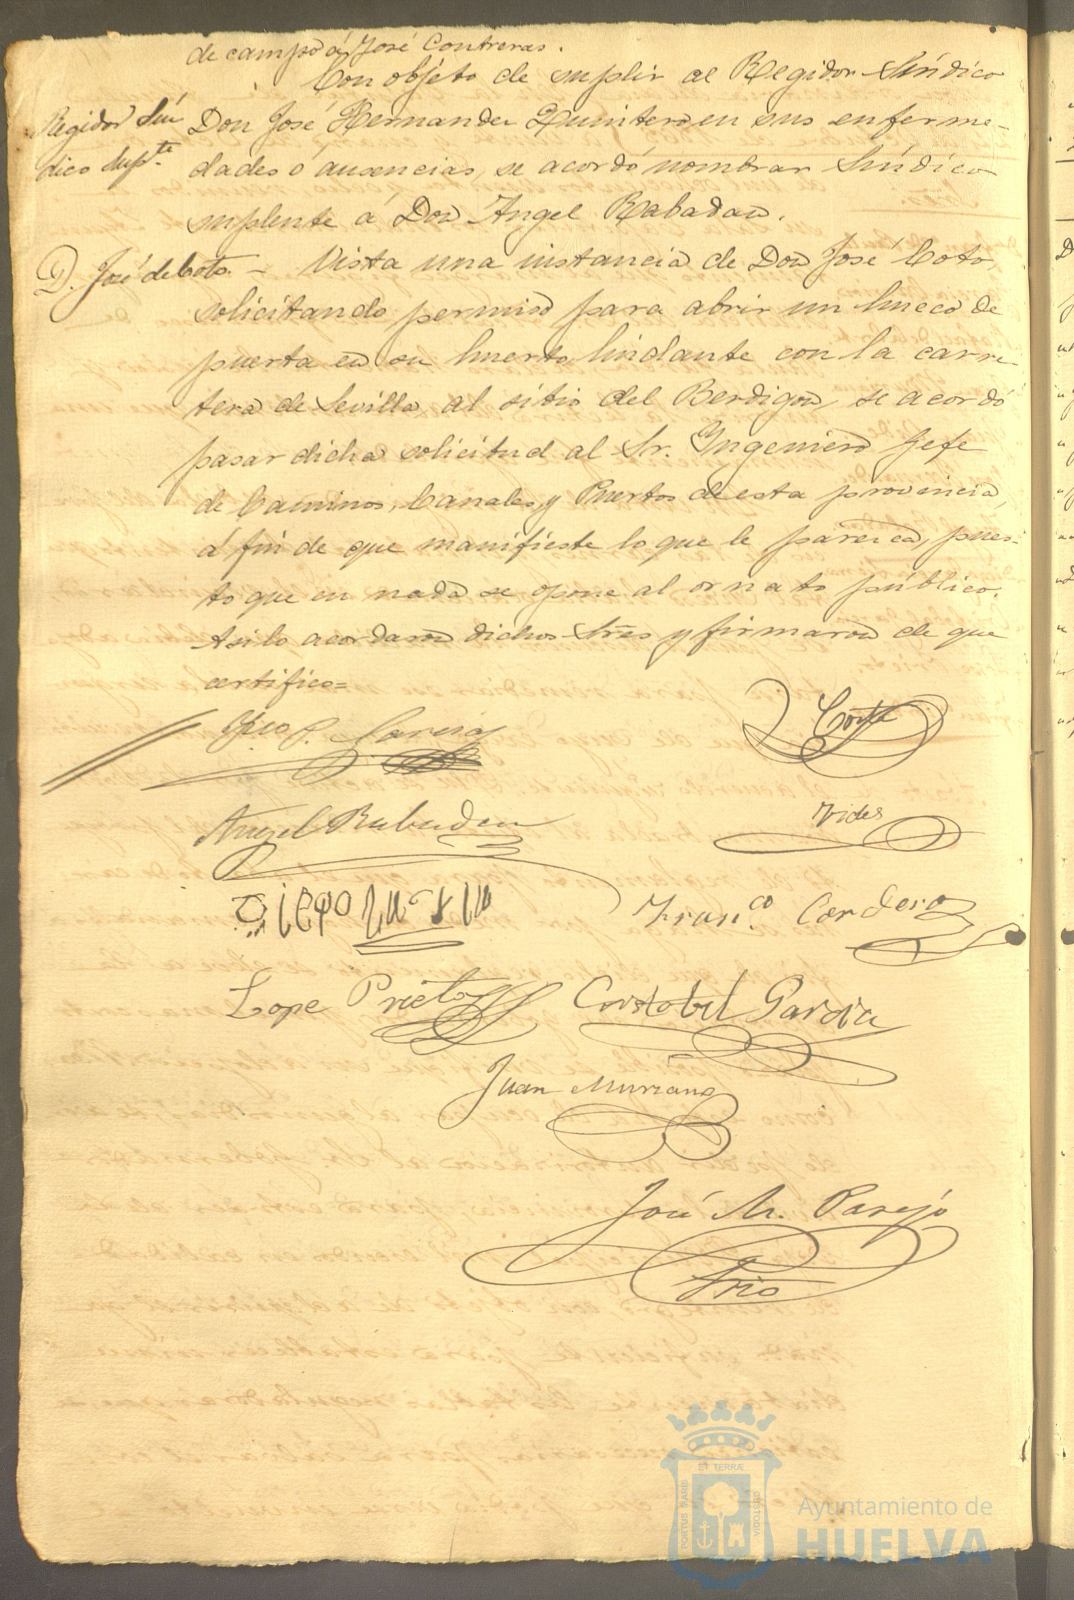 de campo á José Contreras.
Con objeto de suplir al Regidor Síndico
Regidor Sín
Don José Hernandez Quintero en sus enferme-
dico Supte.
dades ó ausencias, se acordó nombrar Síndico
suplente á Don Ángel Rabadan.
D. José de Coto. - Vista una instancia de Don José Coto,
solicitando permiso para abrir un hueco de
puerta en su huerto lindante con la carre
tera de Sevilla, al sitio del Berdigon, se acordó
pasar dicha solicitud al Sr. Ingeniero Jefe
de Caminos, Canales, y Puertos de esta provincia,
á fin de que manifieste lo que le parezca, pues-
to que en nada se opone al ornato público.
Asi lo acordaron dichos Sres y firmaron de que
certifico=
García
Angel Rabadan
Vides
Diego
Franco. Cordero
Lope Prieto
Cristobal Garcia
Juan Muriano
José M. Parejo
Srio
PORTUS MARIS ET TERRÆ CUSTODIA
Ayuntamiento de
HUELVA